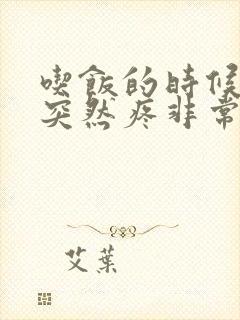 喫飯的時候
突然疼非常
艾葉